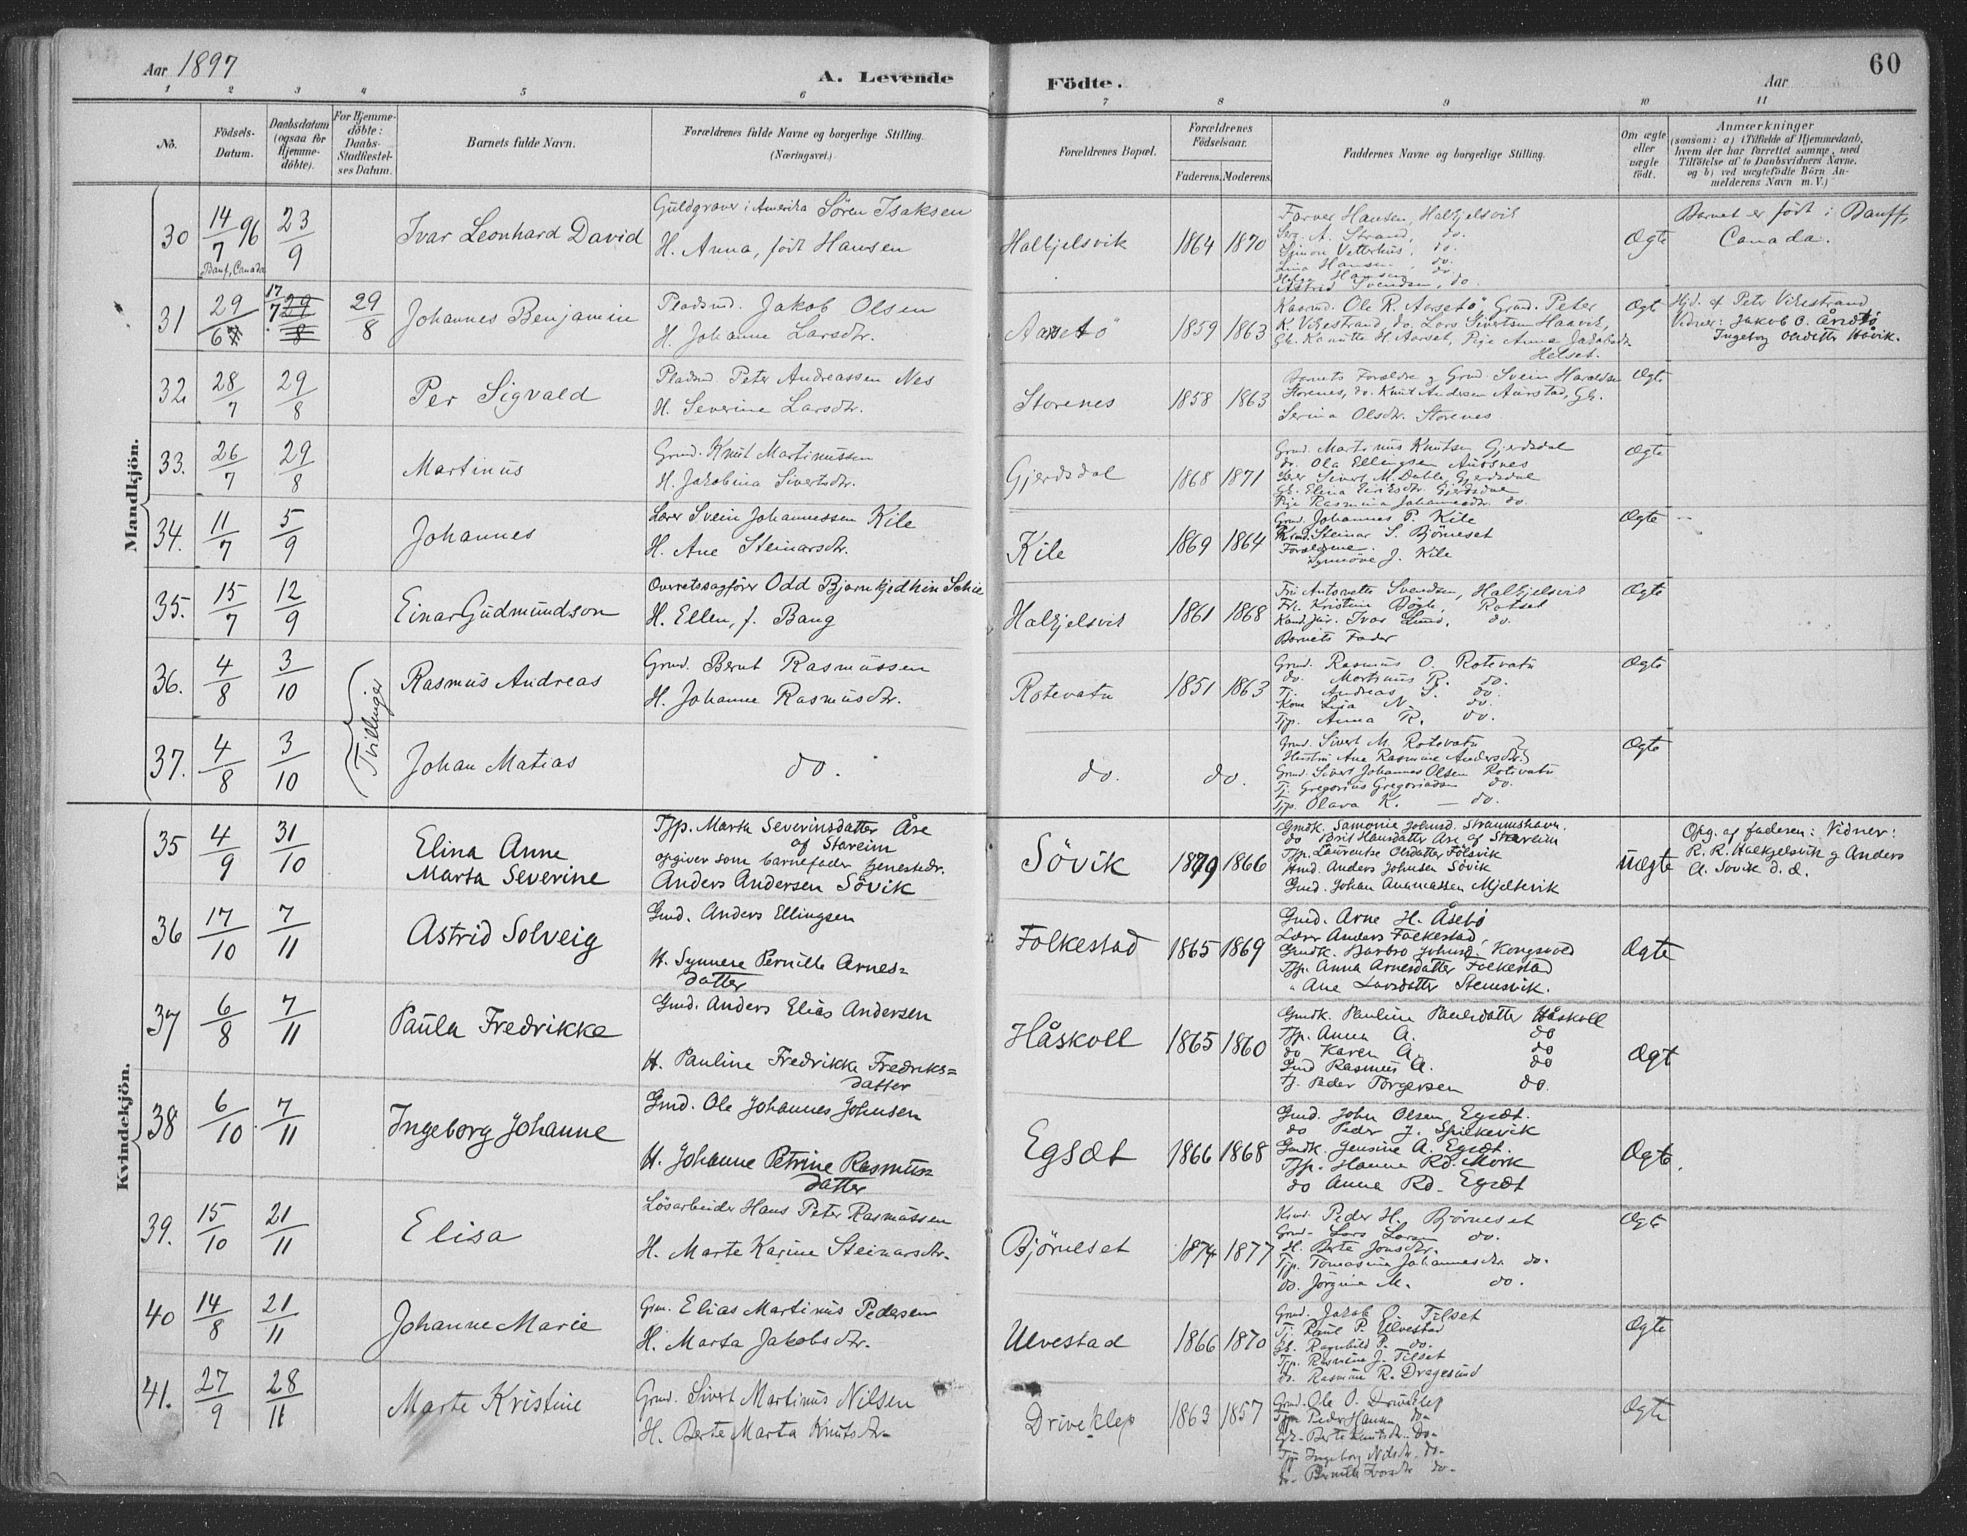 Aar 1897
A. Levende
Födte.
Aar
60
1 2 3 4 5 6 7 8 9 10 11
No.
Födsels-
Datum.
Daabsdatum
(ogsaa for
Hjemme-
döbte).
For Hjemme-
döbte:
Daabs-
Stadfæstel-
ses Datum.
Barnets fulde Navn.
Forældrenes fulde Navne og borgerlige Stilling.
(Næringsvei.)
Forældrenes Bopæl.
Forældrenes
Födselsaar.
Faderens. Moderens.
Faddernes Navne og borgerlige Stilling.
Om ægte
eller
uægte
födt.
Anmærkninger
(saasom: a) i Tilfælde af Hjemmedaab,
hvem der har forrettet samme, med
Tilföielse af to Daabsvidners Navne,
og b) ved uægtefödte Börn An-
melderens Navn m. V.)
Mandkjön.
30 14/7 96 23/9 Ivar Leonhard David
Banf, Canada
Guldgraver i Amerika Sören Isaksen
H. Anna, født Hansen
Halkjelsvik 1864 1870
Farver Hansen, Halkjelsvik
A. Strand, do.
Simon Vetterhus, do.
Lina Hansen, do.
Hansen do.
Astrid Svendsen, do.
Ægte
Barnet er født i Banff,
Canada.
31 29/6 17/7 29/8 29/8 Johannes Benjamin
Pladsmd. Jakob Olsen
H. Johanne Larsdtr.
Aarsetö 1859 1863
Ole R. Aarsetö, Grmd. Peter
K. Vikestrand, do. Lars Sivertsen Haavik,
H. Aarset, Pige Anna Jakobsdr.
Helset.
Ægte
Hjd. af Peter Vikestrand
Vidner: Jakob O. Årsetø
Ingeborg Håvik.
32. 28/7 29/8 Per Sigvald
Pladsmd. Peter Andreassen Nes
H. Severine Larsdtr.
Storenes 1858 1863
Barnets Forældre og Grmd. Svein Haraldsen
Storenes, do. Knut Andersen Aurstad, Gb.
Serina Olsdtr. Storenes
Ægte
33. 26/7 29/8 Martinus
Grmd. Knut Martinussen
H. Jakobina Sivertsdtr.
Gjerdsdal 1868 1871
Grmd. Martinus Knutsen Gjerdsdal
do. Ola Ellingsen Aursnes
Sivert M. Dahle, Gjerdsdal
Elina Eriksdtr. Gjerdsdal
Pige Rasmina Johannesdtr. do.
Ægte
34. 11/7 5/9 Johannes
Lærer Svein Johannessen Kile
H. Ane Steinarsdtr.
Kile 1869 1864
Grmd. Johannes P. Kile
Steinar S. Björneset
Forældrene.
Synnöve J. Kile
Ægte
35. 15/7 12/9 Einar Gudmundson
Overretssagfører Odd Bjarnhjedhin Schie
H. Ellen, f. Bang
Halkjelsvik 1861 1868
Fru Antonette Svendsen, Halkjelsvik
Frk. Kristine Bögh, Rotset
Kand. jur. Ivar Lund, do.
Barnets Fader
Ægte
36. 4/8 3/10 Rasmus Andreas
Tvillinger
Grmd. Bernt Rasmussen
H. Johanne Rasmusdtr.
Rotevatn 1851 1863
Grmd. Rasmus O. Rotevatn
do. Martinus R. do.
Tj. Andreas S. do.
Kone Lisa N. do.
Tjp. Anna R. do.
Ægte
37. 4/8 3/10 Johan Matias
do.
do. do.
Grmd. Sivert M. Rotevatn
Hustru Ane Rasmine Andersdtr.
Grmd. Sivert Johannes Olsen Rotevatn
Tj. Gregorius Gregoriussen do.
Tjp. Olava K. — do.
Ægte
Kvindekjön.
35 4/9 31/10 Elina Anne
Marta Severine
Tjp. Marta Severinsdatter Åre
af Stareim
opgiver som barnefader tjenestedr.
Anders Andersen Sövik
Sövik 1879 1866
Gmdk. Samonie Johnsd. Straumshavn.
do Brit Hansdatter Åre af Stareim
Tjp. Laurentse Olsdatter Følsvik
Gmd. Anders Johnsen Sövik
Gmd. Johan Mjeltevik
uægte
Opg. af faderen: Vidner:
R. R. Halkjelsvik og Anders
A. Sövik d. æ.
36 17/10 7/11 Astrid Solveig
Gmd. Anders Ellingsen
H. Synnere Pernille Arnes=
datter
Folkestad 1865 1869
Gmd. Arne H. Åsebø
Lærer Anders Folkestad,
Gmdk. Barbro Johnsd. Kongsvold
Tjp. Anna Arnesdatter Folkestad
" Ane Larsdatter Stensvik.
Ægte
37 6/8 7/11 Paula Fredrikke
Gmd. Anders Elias Andersen
H. Pauline Fredrikke Fredriks=
datter
Håskoll 1865 1860
Gmdk. Pauline Paulsdatter Håskoll
Tjp. Anna A. do
do Karen A. do
Gmd Rasmus A. do
tj. Peder Torgersen do.
Ægt
38 6/10 7/11 Ingeborg Johanne
Gmd. Ole Johannes Johnsen
H. Johanne Petrine Rasmus=
datter
Egsæt 1866 1868
Gmd. John Olsen Egsæt.
do Peder J. Spilkevik
Gmdk. Jensine A. Egsæt.
Tjp. Hanna Rd. Mork
do Anna Rd. Egsæt
Ægte.
39. 15/10 21/11 Elisa
Løsarbeider Hans Peter Rasmussen
H. Marte Karine Steinarsdtr.
Björneset 1874 1877
Peder H. Björneset
Grmd. Lars Larsen do.
H. Berte Jonsdtr.
Tjp. Tomasine Johannesdtr. do.
do. Jörgine M. do.
Ægte
40 14/8 21/11 Johanne Marie
Grm. Elias Martinus Pedersen
H. Marta Jakobsdtr.
Ulvestad 1866 1870
Grmd. Jakob O. Tilset
Tj. Paul P. Ulvestad
Ragnhild P. do.
Tjp. Rasmine J. Tilset
do. Rasmine R. Dragesund
Ægte
41. 27/9 28/11 Marte Kristine
Grmd. Sivert Martinus Nilsen
H. Berte Marta Knutsdtr.
Driveklep 1863 1857
Grmd. Ole O. Driveklep
Peder Hansen do.
Berte Knutsdtr. do.
Tjp. Ingeborg Nilsdtr. do.
do. Pernille Ivarsdtr do.
Ægte